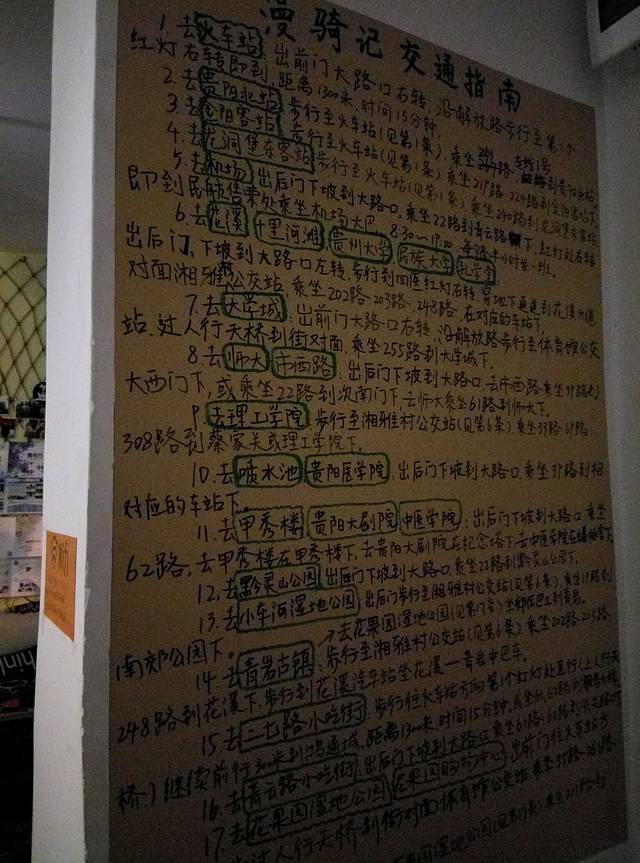 漫骑记交通指南
1.去火车站:出前门大路口右转,沿解放路步行至第1个
红灯右转即到,距离1300米,时间15分钟.
2.去贵阳北站:步行至火车站(见第1条),乘坐
3.去金阳客站:步行至火车站(见第1条)乘坐219路、224路到金阳客站
4.去龙洞堡东客站步行至火车站(见第1条)乘坐240路到龙洞堡客站
5.去机场:出后门下坡到大路口,乘坐22路到青云路下,红灯处右转
即到民航售票处乘坐机场大巴 8:30-19:00 每隔半小时发一班.
6.去花溪 十里河滩 贵州大学 民族大学 孔学堂
出后门,下坡到大路口左转,步行到四医红灯右转,穿地下通道到花溪大道
对面湘雅村公交站,乘坐202路、203路、248路,在对应的车站下.
7.去大学城:出前门大路口右转,沿解放路步行至体育馆公交
站,过人行天桥到街对面,乘坐255路到大学城下.
8.去师大 市西路:出后门下坡到大路口,去市西路乘坐39路到
大西门下,或乘坐22路到次南门下,去师大乘坐61路到师大下.
9.去理工学院:步行至湘雅村公交站(见第6条)乘坐33路、47路、
308路到蔡家关或理工学院下.
10.去喷水池 贵阳医学院:出后门下坡到大路口,乘坐39路到相
对应的车站下.
11.去甲秀楼 贵阳大剧院 中医学院:出后门下坡到大路口,乘坐
62路,去甲秀楼在甲秀楼下,去贵阳大剧院在纪念塔下,去中医学院在
12.去黔灵山公园:出后门下坡到大路口,乘坐22路到黔灵山公园下.
13.去小车河湿地公园:出后门步行至湘雅村公交站(见第6条),乘坐19路到
南郊公园下.
→去花果园湿地公园(见第17条)坐 到青岩.
14.去青岩古镇:步行至湘雅村公交站(见第6条)乘坐202路、203路、
248路到花溪下,步行到花溪汽车站坐花溪—青岩中巴车.
15.去二七路小吃街:步行往火车站方向第1个红灯处直行(上人行天
桥)继续前行300米到鸿通城,距离1300米,时间15分钟,
16.去青云路小吃街:出后门下坡到大路口乘坐61路、62路到
17.去花果园湿地公园、花果园购物中心:出前门往火车站方
过人行天桥到街对面体育馆公交站乘坐
湿地公园(见第17条)乘坐